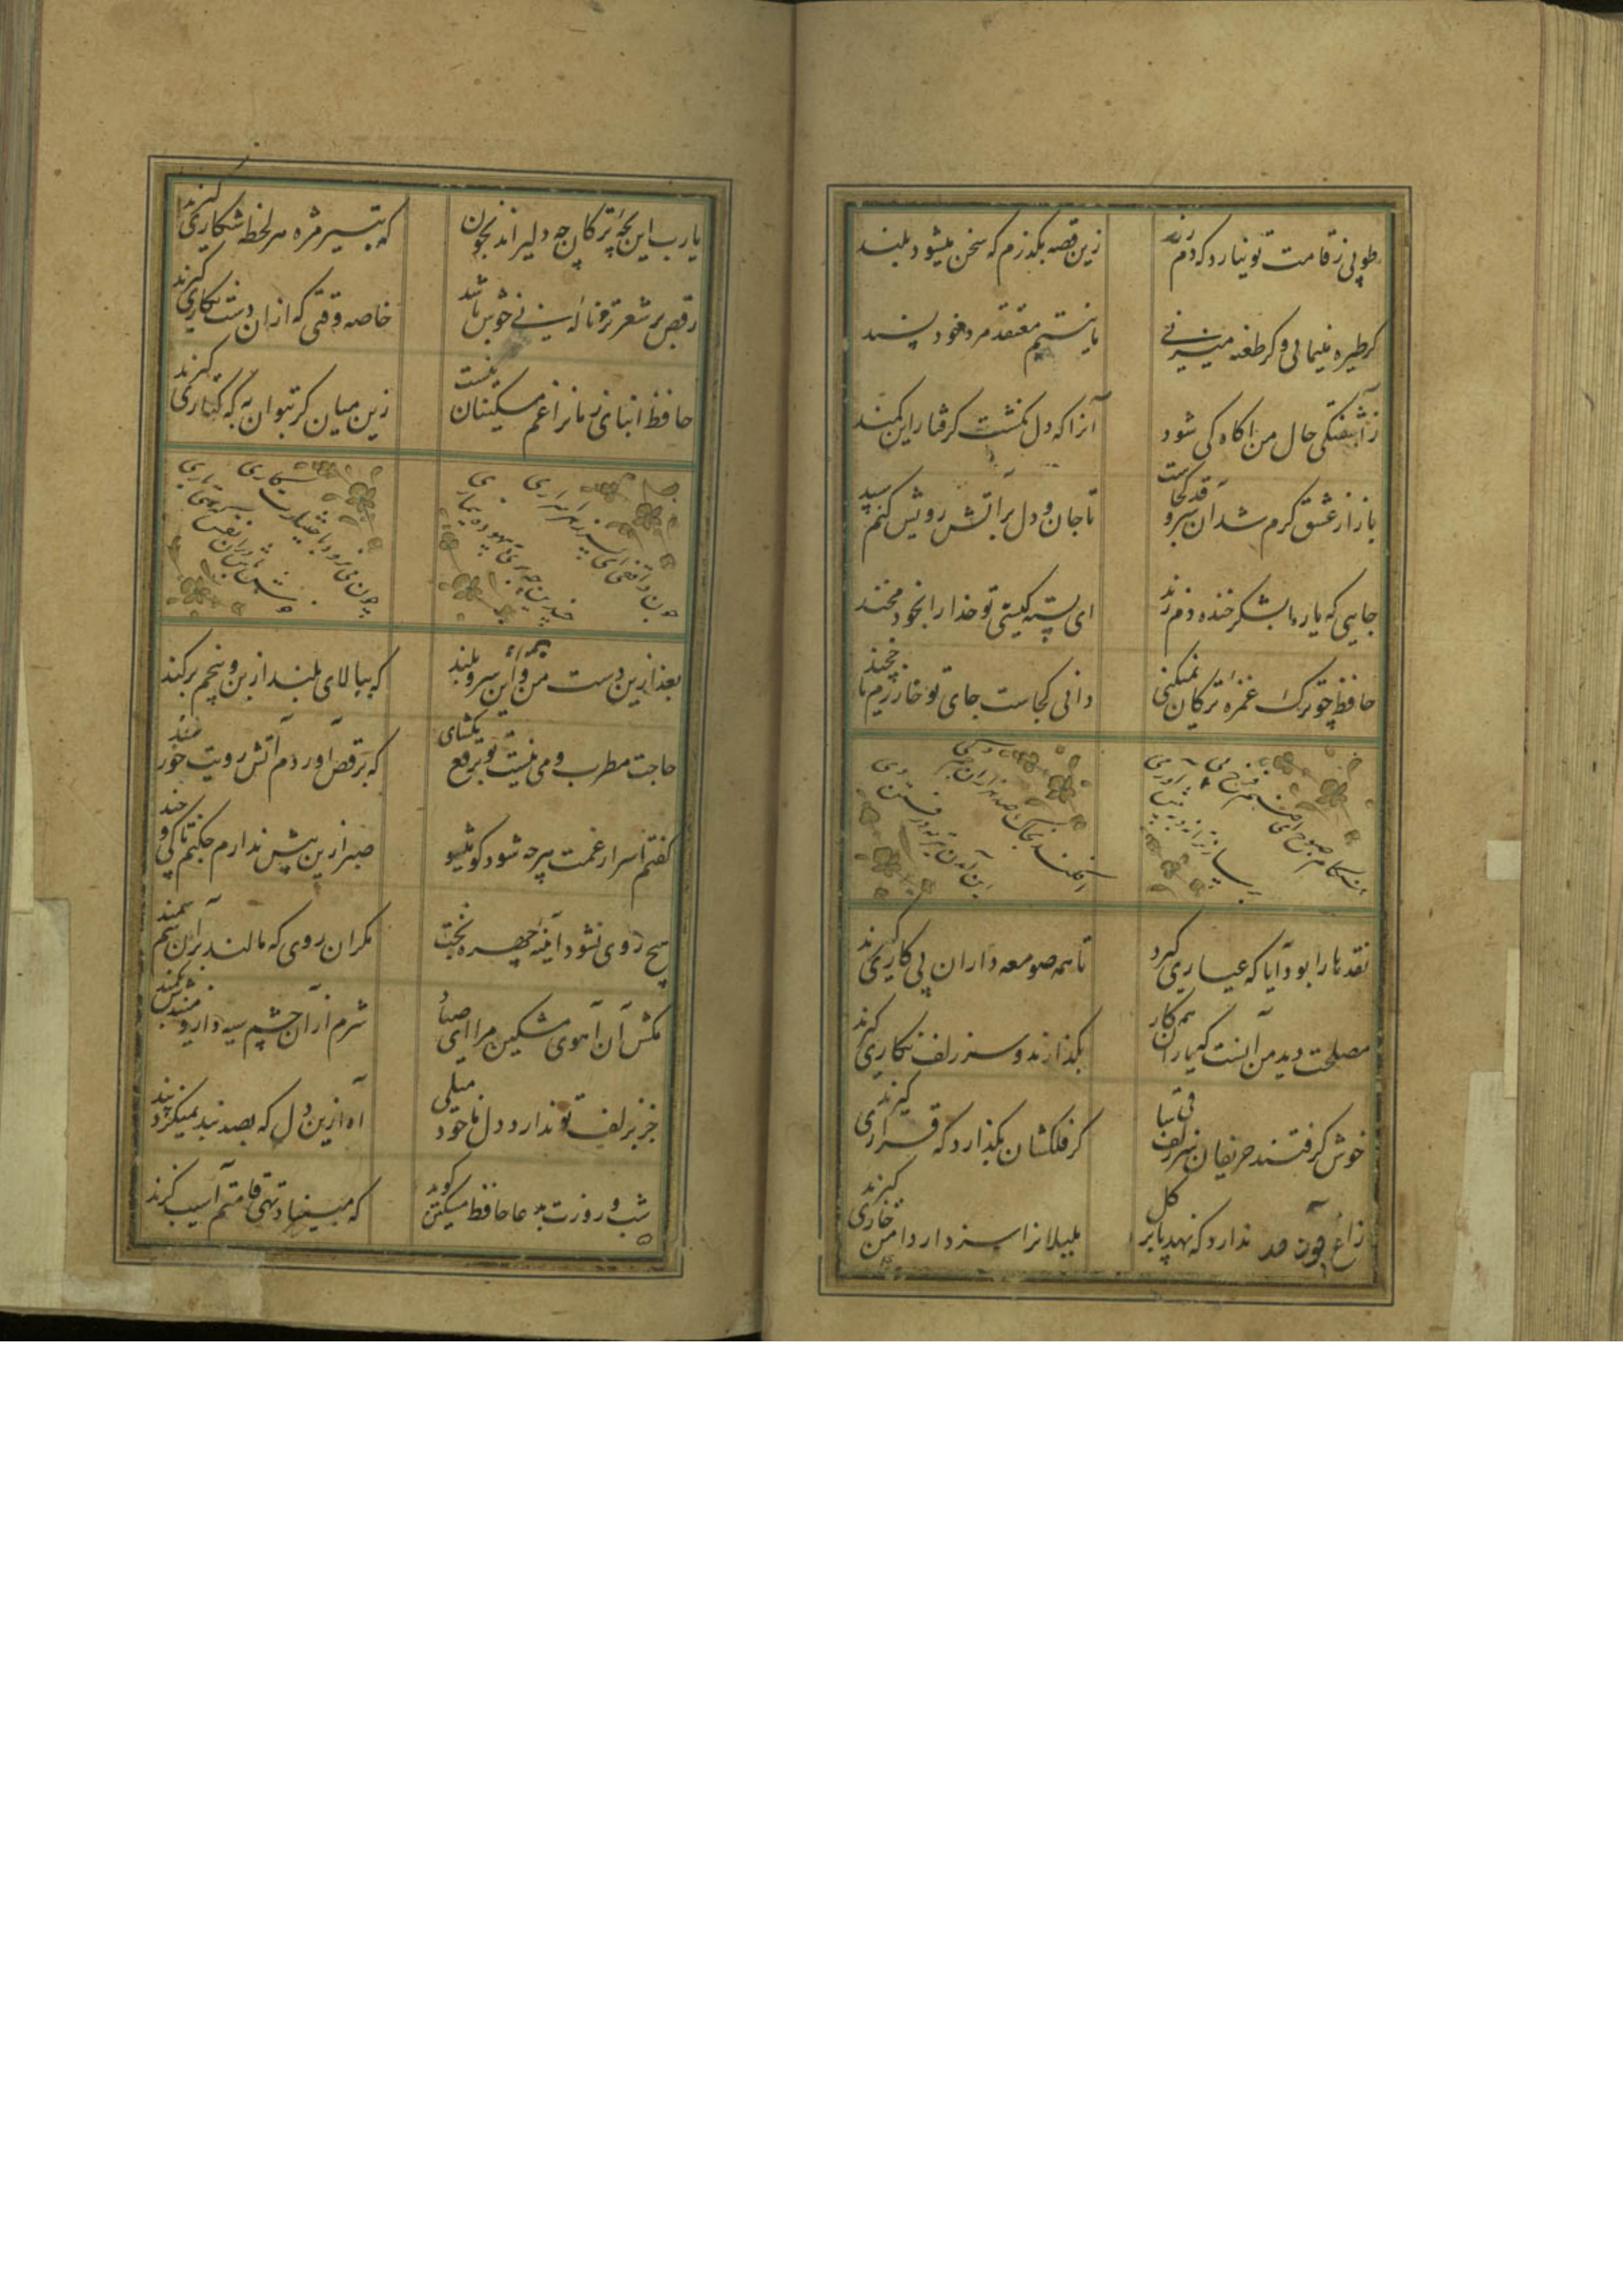 طوبی ز قامت تو نیارد که دم زند زین قصه بکذرم که سخن میشود بلند
کر طیره مینمایی و کر طعنه میزنی ما نیستیم معتقد مرد خود پسند
ز آشفتکی حال من آکاه کی شود آنرا که دل نکشت کرفتار این کمند
بازار عشق کرم شد آن سرو قد کجاست تا جان و دل بر آتش رویش کنم سپند
جایی که یار ما بشکر خنده دم زند ای پسته کیستی تو خدا را بخود مخند
حافظ چو ترک غمزه ترکان نمیکنی دانی کجاست جای تو خوارزم یا خجند
هنکام صبوح ای صنم فرخ پی
برساز ترانه و به پیش آور می
کافکند بخاک صد هزاران جم و کی
این آمدن تیرمه و رفتن دی
نقدها را بود آیا که عیاری کیرد تا همه صومعه داران پی کاری کیرند
مصلحت دید من آنست که یاران همه کار بکذارند و سر زلف نکاری کیرند
خوش کرفتند حریفان سر زلف ساقی کر فلکشان بکذارد که قراری کیرند
زاغ چون ندارد که نهد پا بر کل بلبلانرا سزد ار دامن خاری کیرند
یارب این بچه ترکان چه دلیرند بخون که بتیر مژه هر لحظه شکاری کیرند
رقص بر شعر تر و ناله نی خوش باشد خاصه وقتی که از آن دست نکاری کیرند
حافظ ابنای زمانرا غم مسکینان نیست زین میان کر بتوان به که کناری کیرند
چون واقفی ای پسر ز هر اسراری
چندین چه بری بیهوده تیماری
چون می نرود باختیارت کاری
خوش باش درین نفس که هستی باری
بعد ازین دست من و این سرو بلند که ببالای بلند از بن و بیخم برکند
حاجت مطرب و می نیست تو برقع بکشای که برقص آوردم آتش رویت چو سپند
کفتم اسرار غمت هر چه شود کو میشو صبر ازین بیش ندارم چکنم تا کی و چند
هیچ روی نشود آینه چهره بخت مکر آن روی که مالند بر آن سم سمند
مکش آن آهوی مشکین مرا ای صیاد شرم از آن چشم سیه دار و مبندش بکمند
جز بزلف تو ندارد دل ما خود میلی آه ازین دل که بصد بند نمیکیرد پند
شب و روزت بدعا حافظ مسکین کوید که مبیناد تهی قامتم آسیب کزند